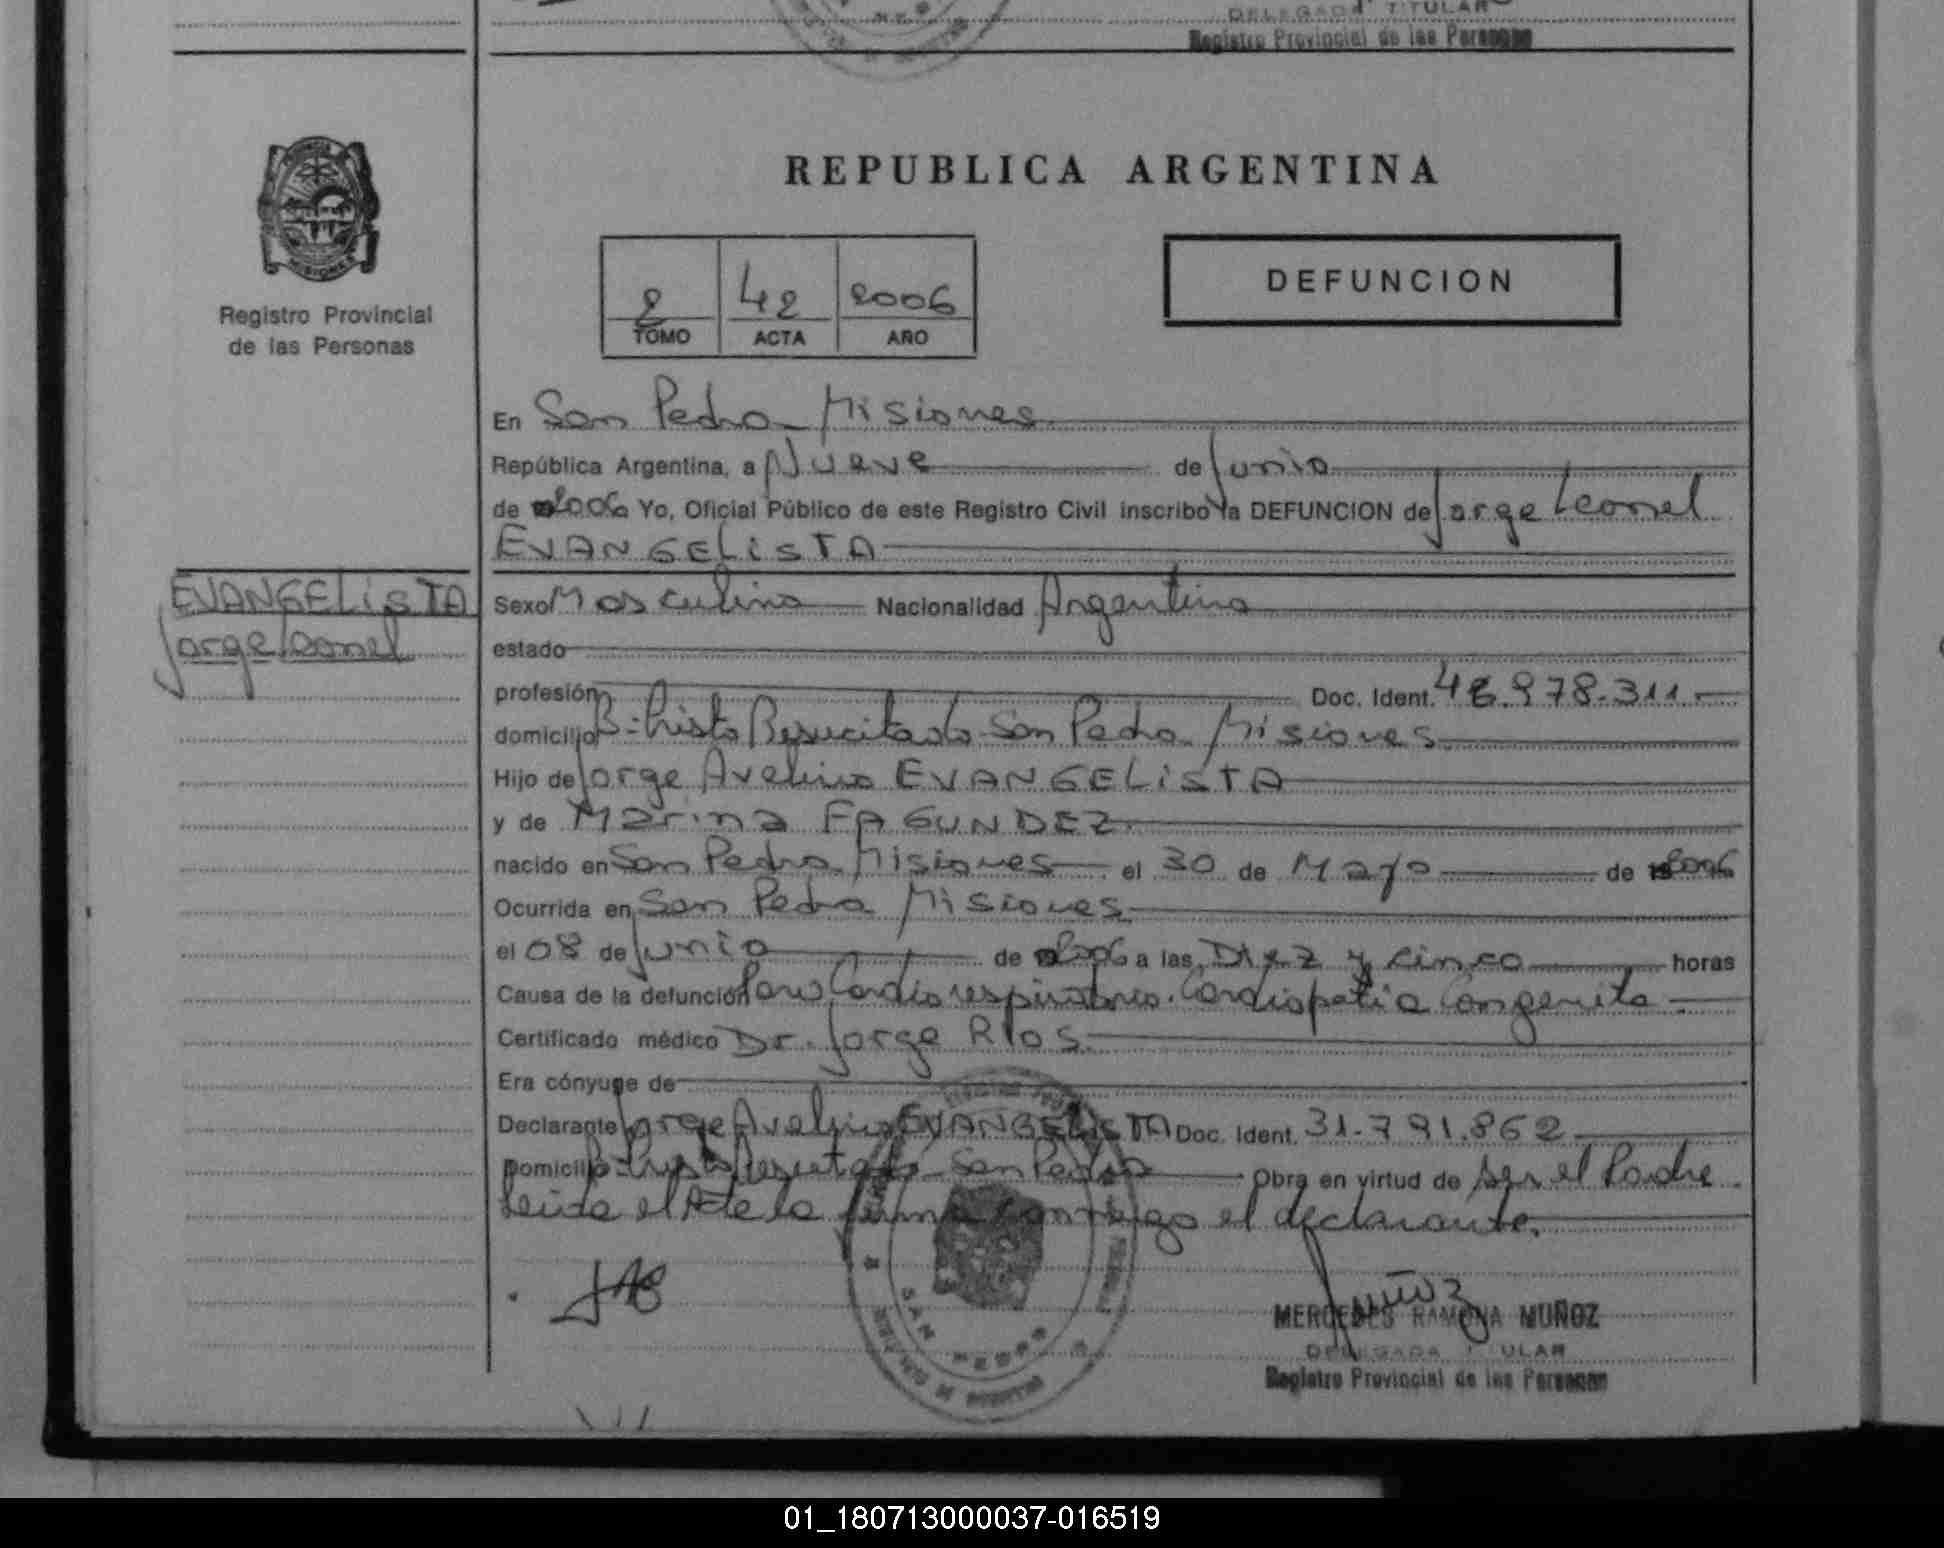 DELEGADA TITULAR
Registro Provincial de las Personas
REPUBLICA ARGENTINA
PROVINCIA
MISIONES
Registro Provincial
de las Personas
2 42 2006
TOMO ACTA AÑO
DEFUNCION
En San Pedro Misiones
República Argentina, a Nueve de Junio
de 2006 Yo, Oficial Público de este Registro Civil inscribo la DEFUNCION de Jorge Leonel
EVANGELISTA
EVANGELISTA
Jorge Leonel
Sexo Masculino Nacionalidad Argentina
estado
profesión Doc. Ident. 46.978.311.-
domicilio B- Cristo Resucitado San Pedro Misiones
Hijo de Jorge Avelino EVANGELISTA
y de Marina FAGUNDEZ
nacido en San Pedro Misiones el 30 de Mayo de 2006
Ocurrida en San Pedro Misiones
el 08 de Junio de 2006 a las Diez y cinco horas
Causa de la defunción Paro Cardiorespiratorio. Cardiopatia Congenita
Certificado médico Dr. Jorge RIOS
Era cónyuge de
Declarante Jorge Avelino EVANGELISTA Doc. Ident. 31.791.862
Domicilio B- Cristo Resucitado San Pedro Obra en virtud de ser el Padre.
Leida el Acta la firma conmigo el declarante.
JAE
SAN PEDRO
Muñoz
MERCEDES RAMONA MUÑOZ
DELEGADA TITULAR
Registro Provincial de las Personas
01_180713000037-016519